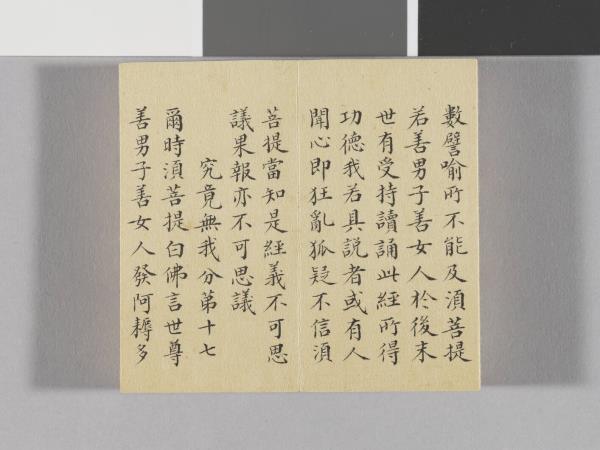 數譬喻所不能及須菩提
若善男子善女人於後末
世有受持讀誦此經所得
功德我若具說者或有人
聞心即狂亂狐疑不信須
菩提當知是經義不可思
議果報亦不可思議
究竟無我分第十七
爾時須菩提白佛言世尊
善男子善女人發阿耨多